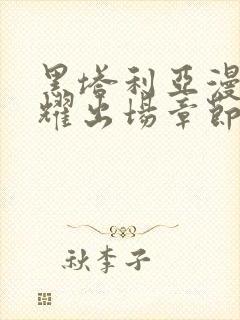 黑塔利亞漫
耀出場章節
秋李子